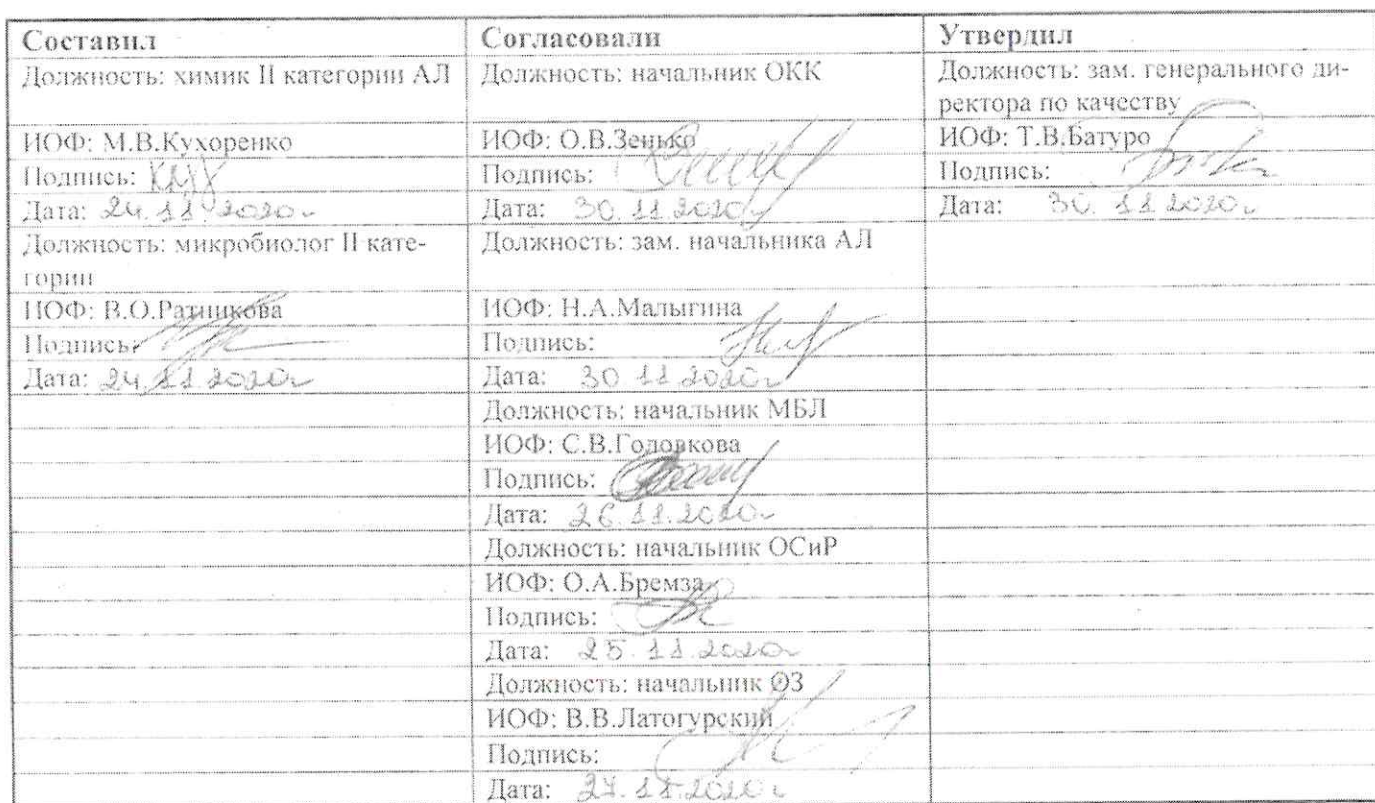 Составил Согласовали Утвердил
Должность: химик II категории АЛ Должность: начальник ОКК Должность: зам. генерального ди-
ректора по качеству
ИОФ: М.В.Кухоренко ИОФ: О.В.Зенько ИОФ: Т.В.Батуро
Подпись: Подпись: Подпись:
Дата: 24.11.2020г Дата: 30.11.2020г Дата: 30.11.2020г
Должность: микробиолог II кате- Должность: зам. начальника АЛ
гории
ИОФ: В.О.Ратникова ИОФ: Н.А.Малыгина
Подпись: Подпись:
Дата: 24.11.2020г Дата: 30.11.2020г
Должность: начальник МБЛ
ИОФ: С.В.Головкова
Подпись:
Дата: 26.11.2020г
Должность: начальник ОСиР
ИОФ: О.А.Бремза
Подпись:
Дата: 25.11.2020г
Должность: начальник ОЗ
ИОФ: В.В.Латогурский
Подпись:
Дата: 27.11.2020г